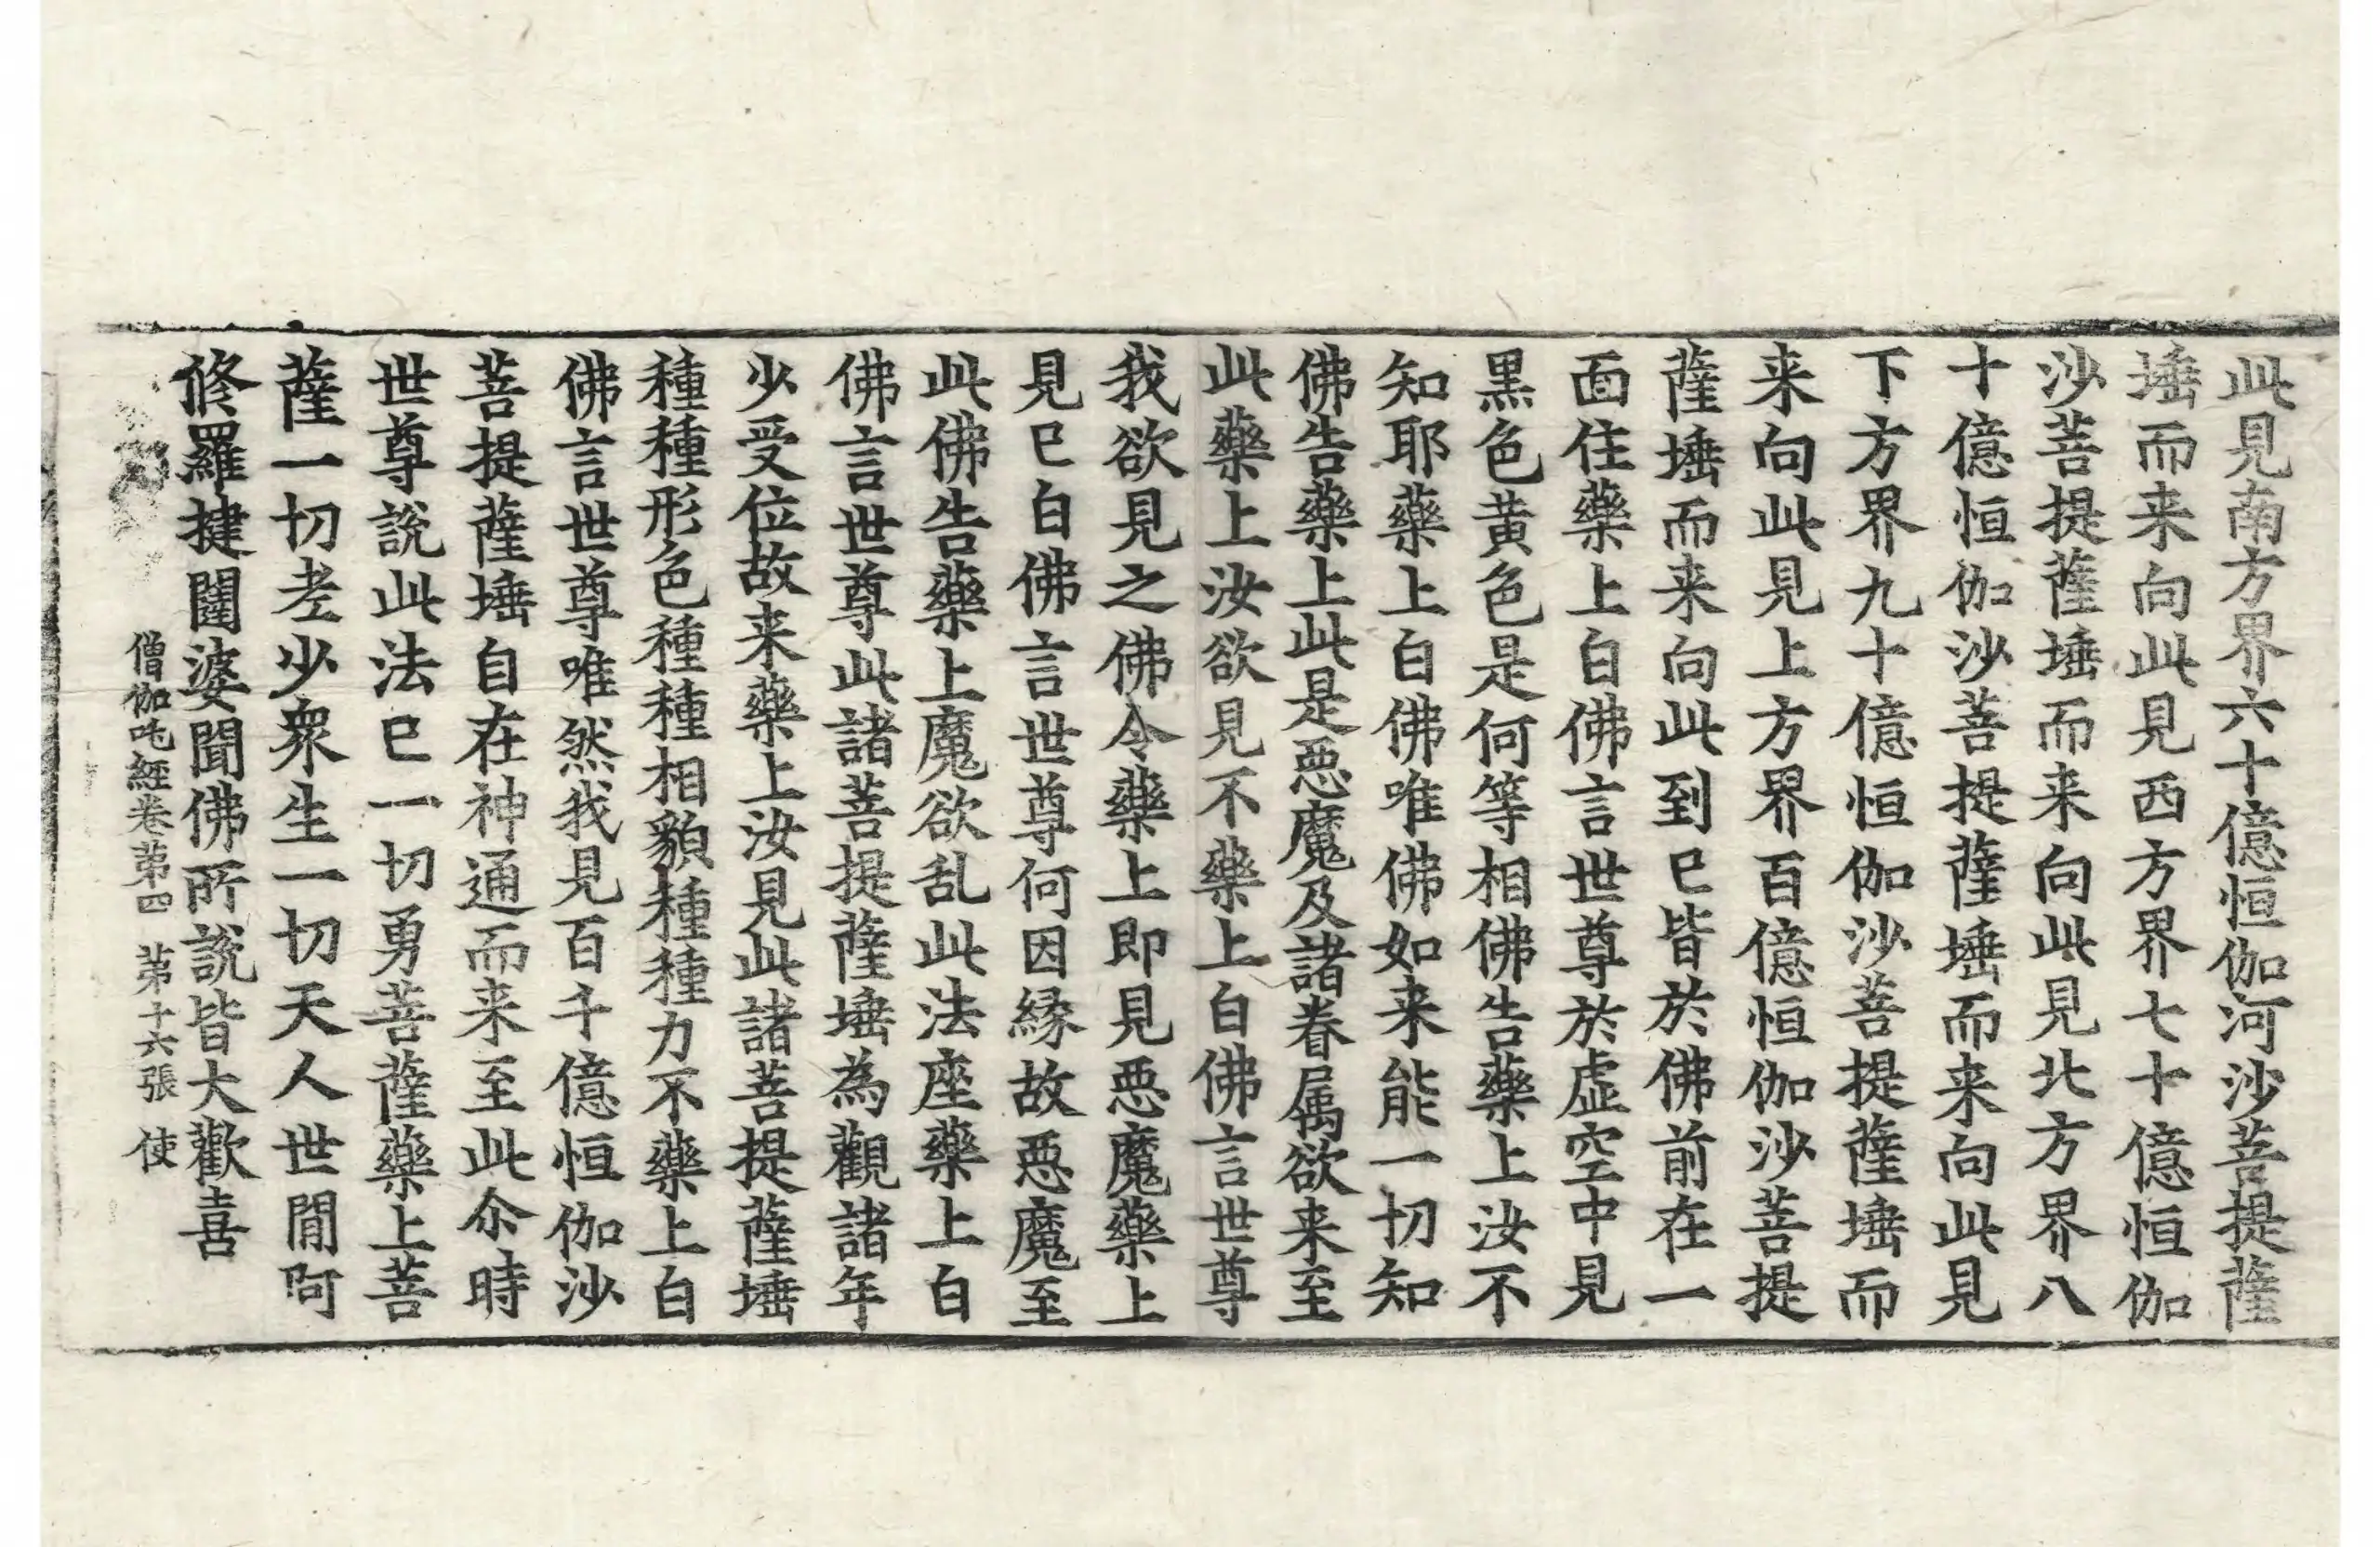 此見南方界六十億恒伽河沙菩提薩
埵而来向此見西方界七十億恒伽
沙菩提薩埵而来向此見北方界八
十億恒伽沙菩提薩埵而来向此見
下方界九十億恒伽沙菩提薩埵而
来向此見上方界百億恒伽沙菩提
薩埵而来向此到已皆於佛前在一
面住藥上白佛言世尊於虛空中見
黒色黄色是何等相佛告藥上汝不
知耶藥上白佛唯佛如来能一切知
佛告藥上此是惡魔及諸眷属欲来至
此藥上汝欲見不藥上白佛言世尊
我欲見之佛令藥上即見惡魔藥上
見已白佛言世尊何因縁故惡魔至
此佛告藥上魔欲乱此法座藥上白
佛言世尊此諸菩提薩埵為觀諸年
少受位故来藥上汝見此諸菩提薩埵
種種形色種種相貌種種力不藥上白
佛言世尊唯然我見百千億恒伽沙
菩提薩埵自在神通而来至此尒時
世尊說此法已一切勇菩薩藥上菩
薩一切老少衆生一切天人世間阿
修羅揵闥婆聞佛所說皆大歡喜
僧伽吒經卷苐四 苐十六張 使